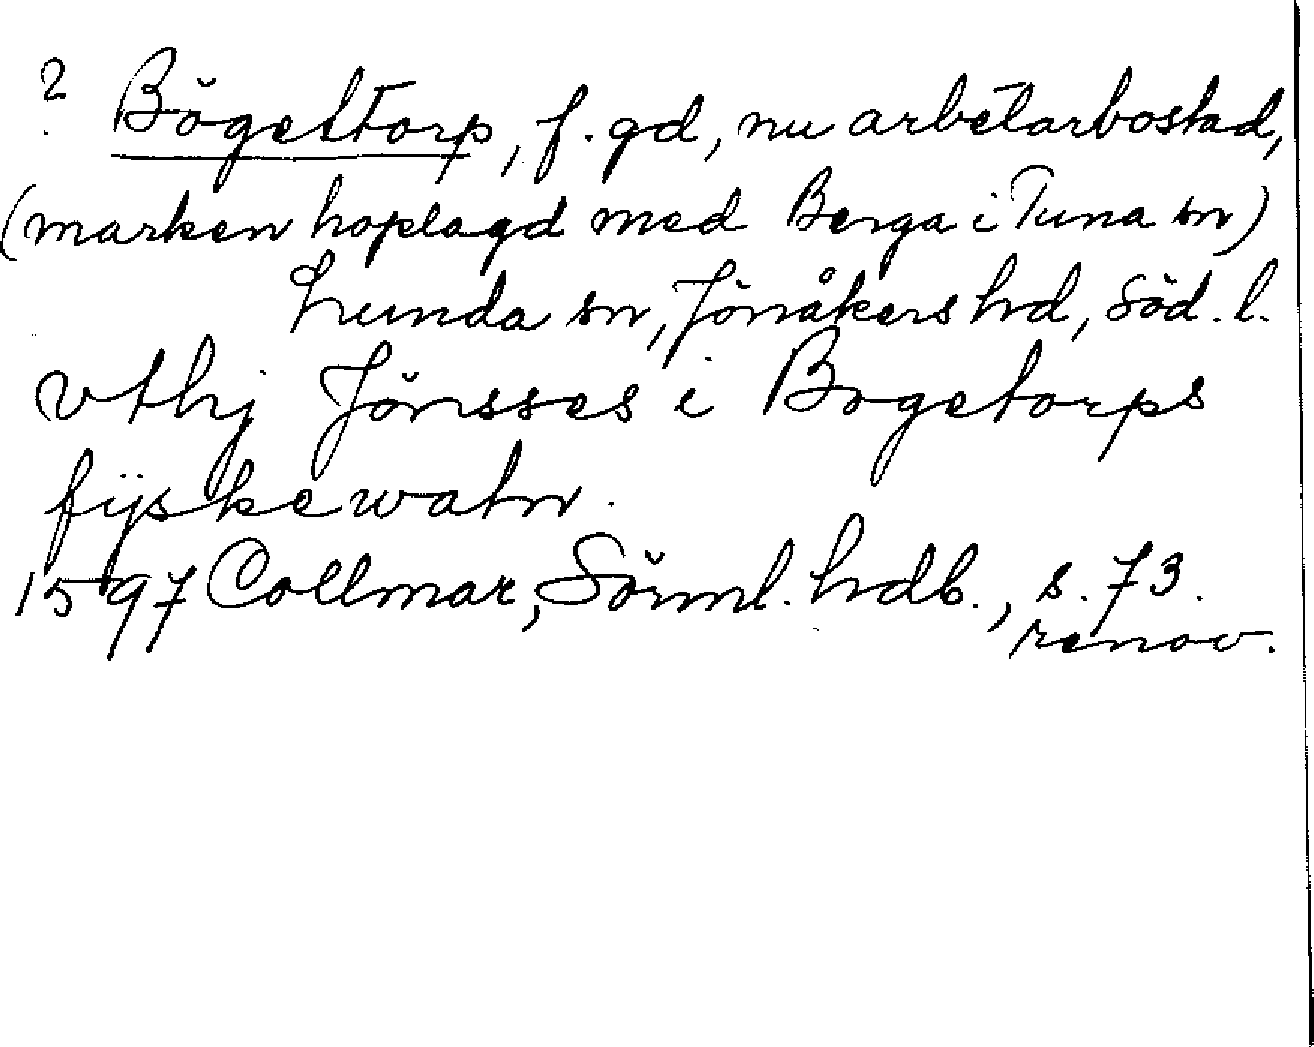 ? Bögeltorp, f. gd, nu arbetarbostad,
(marken hoplagd med Berga i Tuna sn)
Lunda sn, Jönåkers hd, Söd. l.
vthj Jönsses i Bogetorps
fijskewatn.
1597 Collmar, Sörml. hdl., s. 73.
renov.